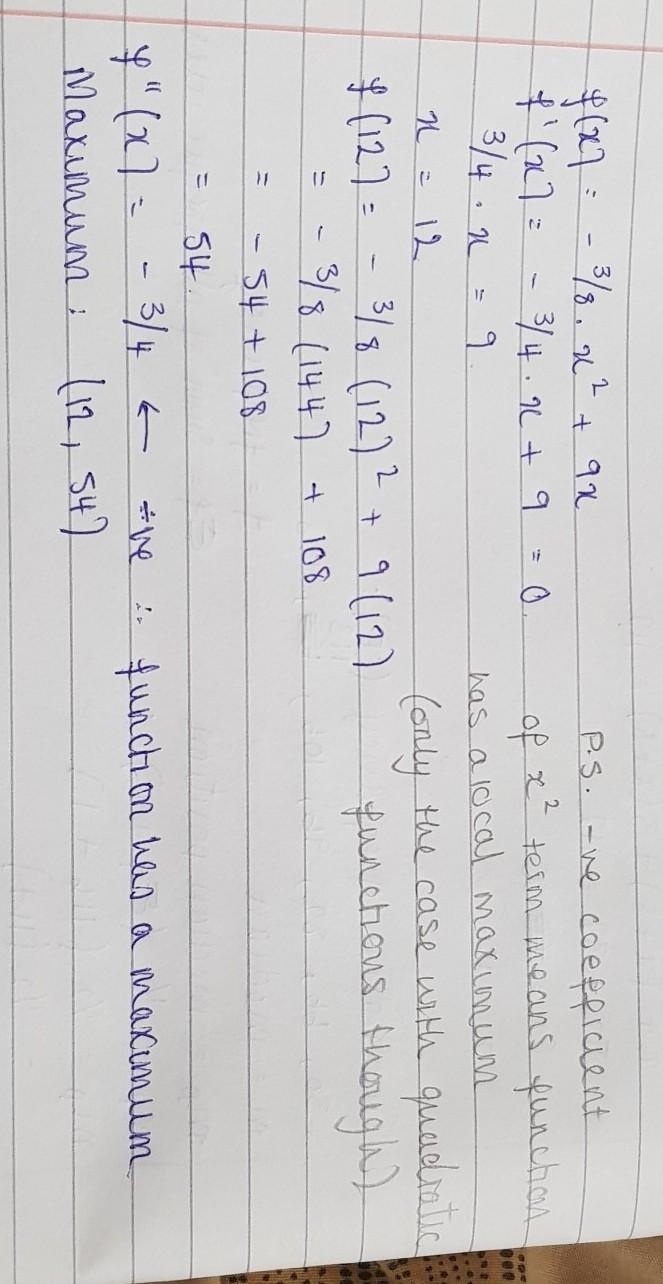 f(x) = - 3/8 . x² + 9x
f'(x) = - 3/4 . x + 9 = 0
3/4 . x = 9
x = 12
f(12) = - 3/8 (12)² + 9(12)
= - 3/8 (144) + 108
= - 54 + 108
= 54
f"(x) = - 3/4 ← -ve ∴ function has a maximum
Maximum : (12, 54)
P.S. -ve coefficient
of x² term means function
has a local maximum
(only the case with quadratic
functions though)